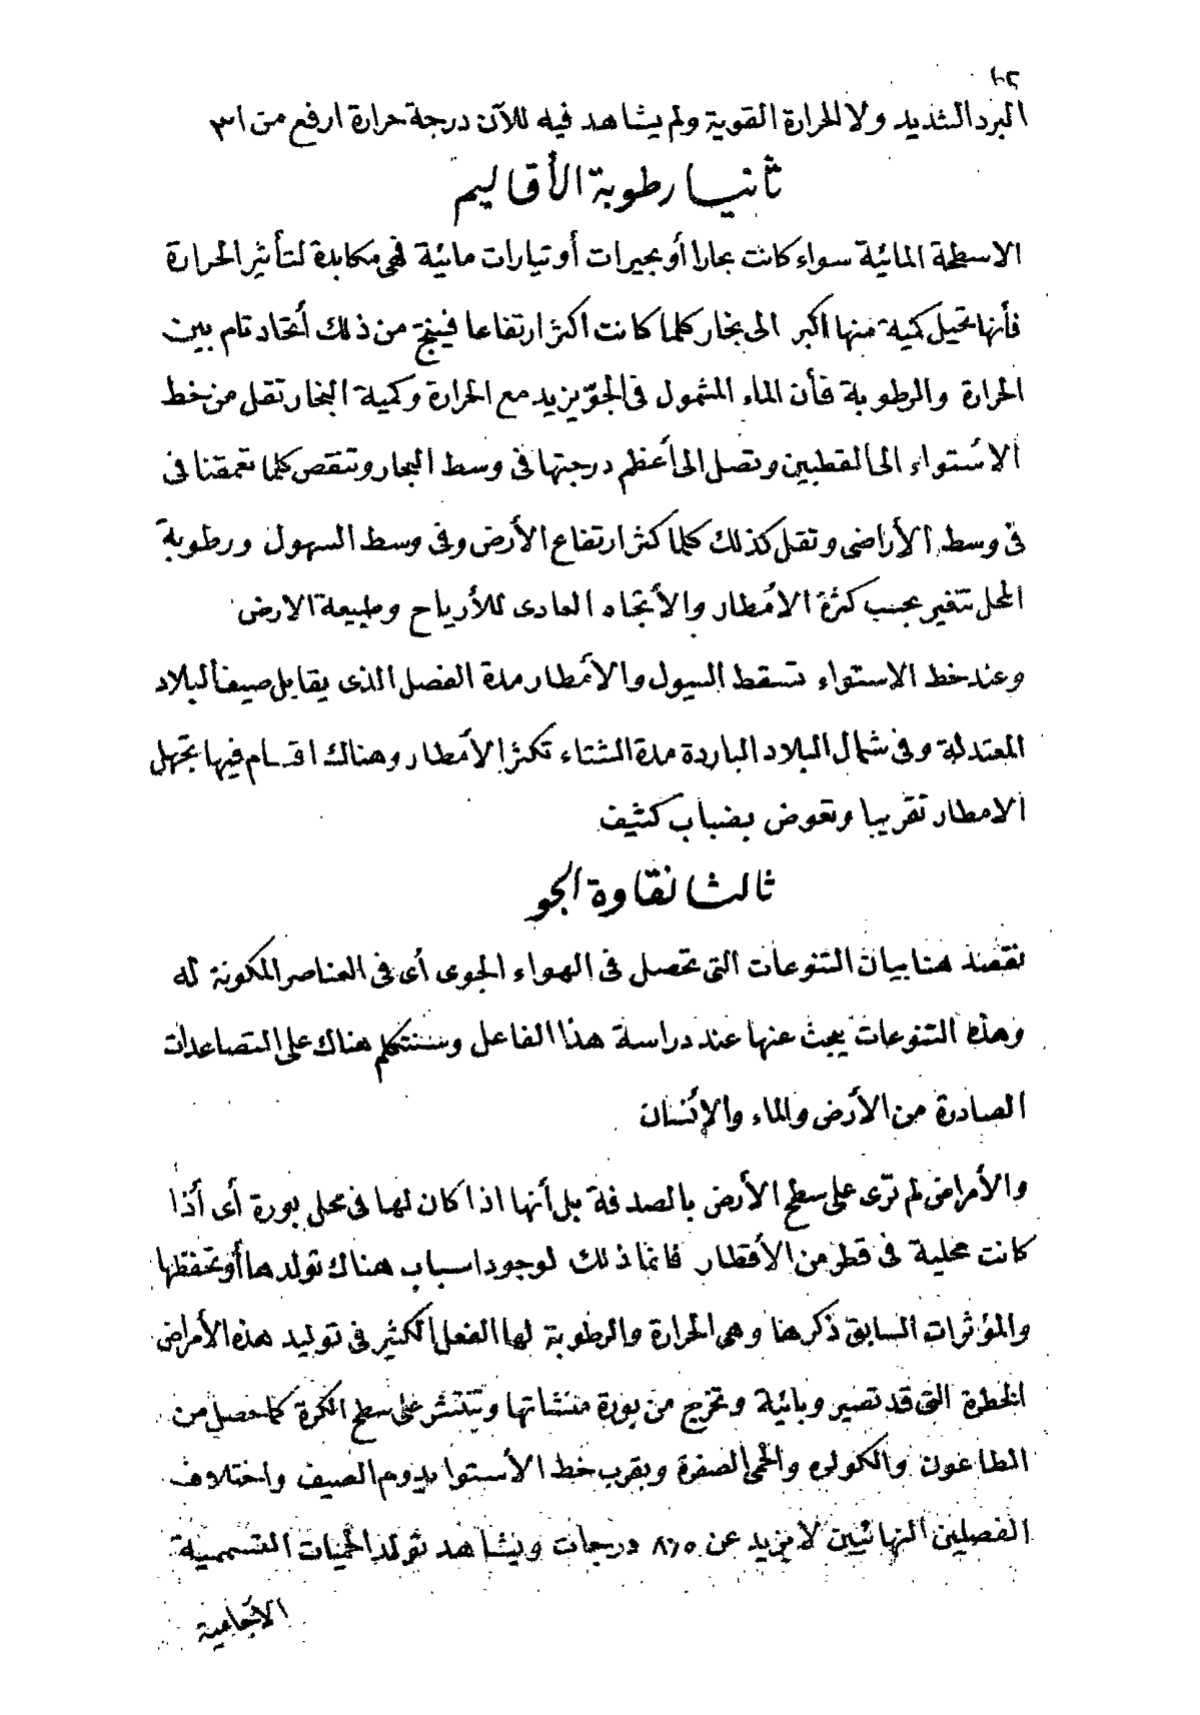 ١٠٢
البرد الشديد ولا للحرارة القوية ولم يشاهد فيه للآن درجة حرارة ارفع من ٣١
ثانيا رطوبة الأقاليم
الاسطحة المائية سواء كانت بحارا أو بحيرات أو تيارات مائية فهى مكابدة لتأثير الحرارة
فأنها تحيل كمية منها اكبر الى بخار كلما كانت اكثر ارتفاعا فينتج من ذلك أتحاد تام بين
الحرارة والرطوبة فأن الماء المشمول فى الجوّ يزيد مع الحرارة وكمية البخار تقل من خط
الأستواء الى القطبين وتصل الى أعظم درجتها فى وسط البحار وتنقص كلما تعمقنا فى
فى وسط الأراضى وتقل كذلك كلما كثر ارتفاع الأرض وفى وسط السهول ورطوبة
المحل تتغير بحسب كثرة الأمطار والأتجاه العادى للأرياح وطبيعة الارض
وعند خط الاستواء تسقط السيول والأمطار مدة الفصل الذى يقابل صيف البلاد
المعتدلة وفى شمال البلاد الباردة مدة الشتاء تكثر الأمطار وهناك اقسام فيها تجهل
الامطار تقريبا وتعوض بضباب كثيف
ثالثا نقاوة الجو
نقصد هنا بيان التنوعات التى تحصل فى الهواء الجوى أى فى العناصر المكونة له
وهذه التنوعات يبحث عنها عند دراسة هذا الفاعل وسنتكلم هناك على التصاعدات
الصادرة من الأرض والماء والإنسان
والأمراض لم ترى على سطح الأرض بالصدفة بل أنها اذا كان لها فى محل بورة أى أذا
كانت محلية فى قطر من الأقطار فانما ذلك لوجود اسباب هناك تولدها أو تحفظها
والمؤثرات السابق ذكرها وهى الحرارة والرطوبة لها الفعل الكثير فى توليد هذه الأمراض
الخطرة التى قد تصير وبائية وتخرج من بورة منشئاتها وتنتشر على سطح الكرة كما حصل من
الطاعون والكولره والحمى الصفرة وبقرب خط الأستوا يدوم الصيف واختلاف
الفصلين النهائيين لا يزيد عن ٥ر٨ درجات ويشاهد تولد الحميات التسممية
الأجامية